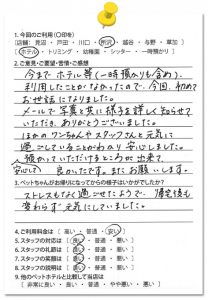 1.今回のご利用(○印を)
(店舗:見沼・戸田・川口・所沢・越谷・与野・草加)
(ホテル・トリミング・幼稚園・シッター・一時預かり)
2.ご意見・ご要望・苦情・ご感想
今までホテル等(一時預かりも含め)
利用したことがなかったので、今回、初めて
お世話になりました。
メールで写真と共に様子を詳しく知らせて
いただき、ありがとうございました。
ほかのワンちゃんやスタッフさんと元気に
過ごしていることがわかり安心しました。
預かっていただけるところが出来て、
(安心して)良かったです。またお願いします。
3.ペットちゃんがお帰りになってからの様子はいかがでしたか?
ストレスもなく過ごせたようで、帰宅後も
変わらず元気にしていました。
4.ご利用料金は(高い・普通・安い)
5.スタッフの対応は(良い・普通・悪い)
6.スタッフの礼節は(良い・普通・悪い)
7.スタッフの身なりは(良い・普通・悪い)
8.スタッフの説明は(良い・普通・悪い)
9.他のペットホテルと比較して当店は
(非常に良い・良い・普通・やや悪い・悪い)